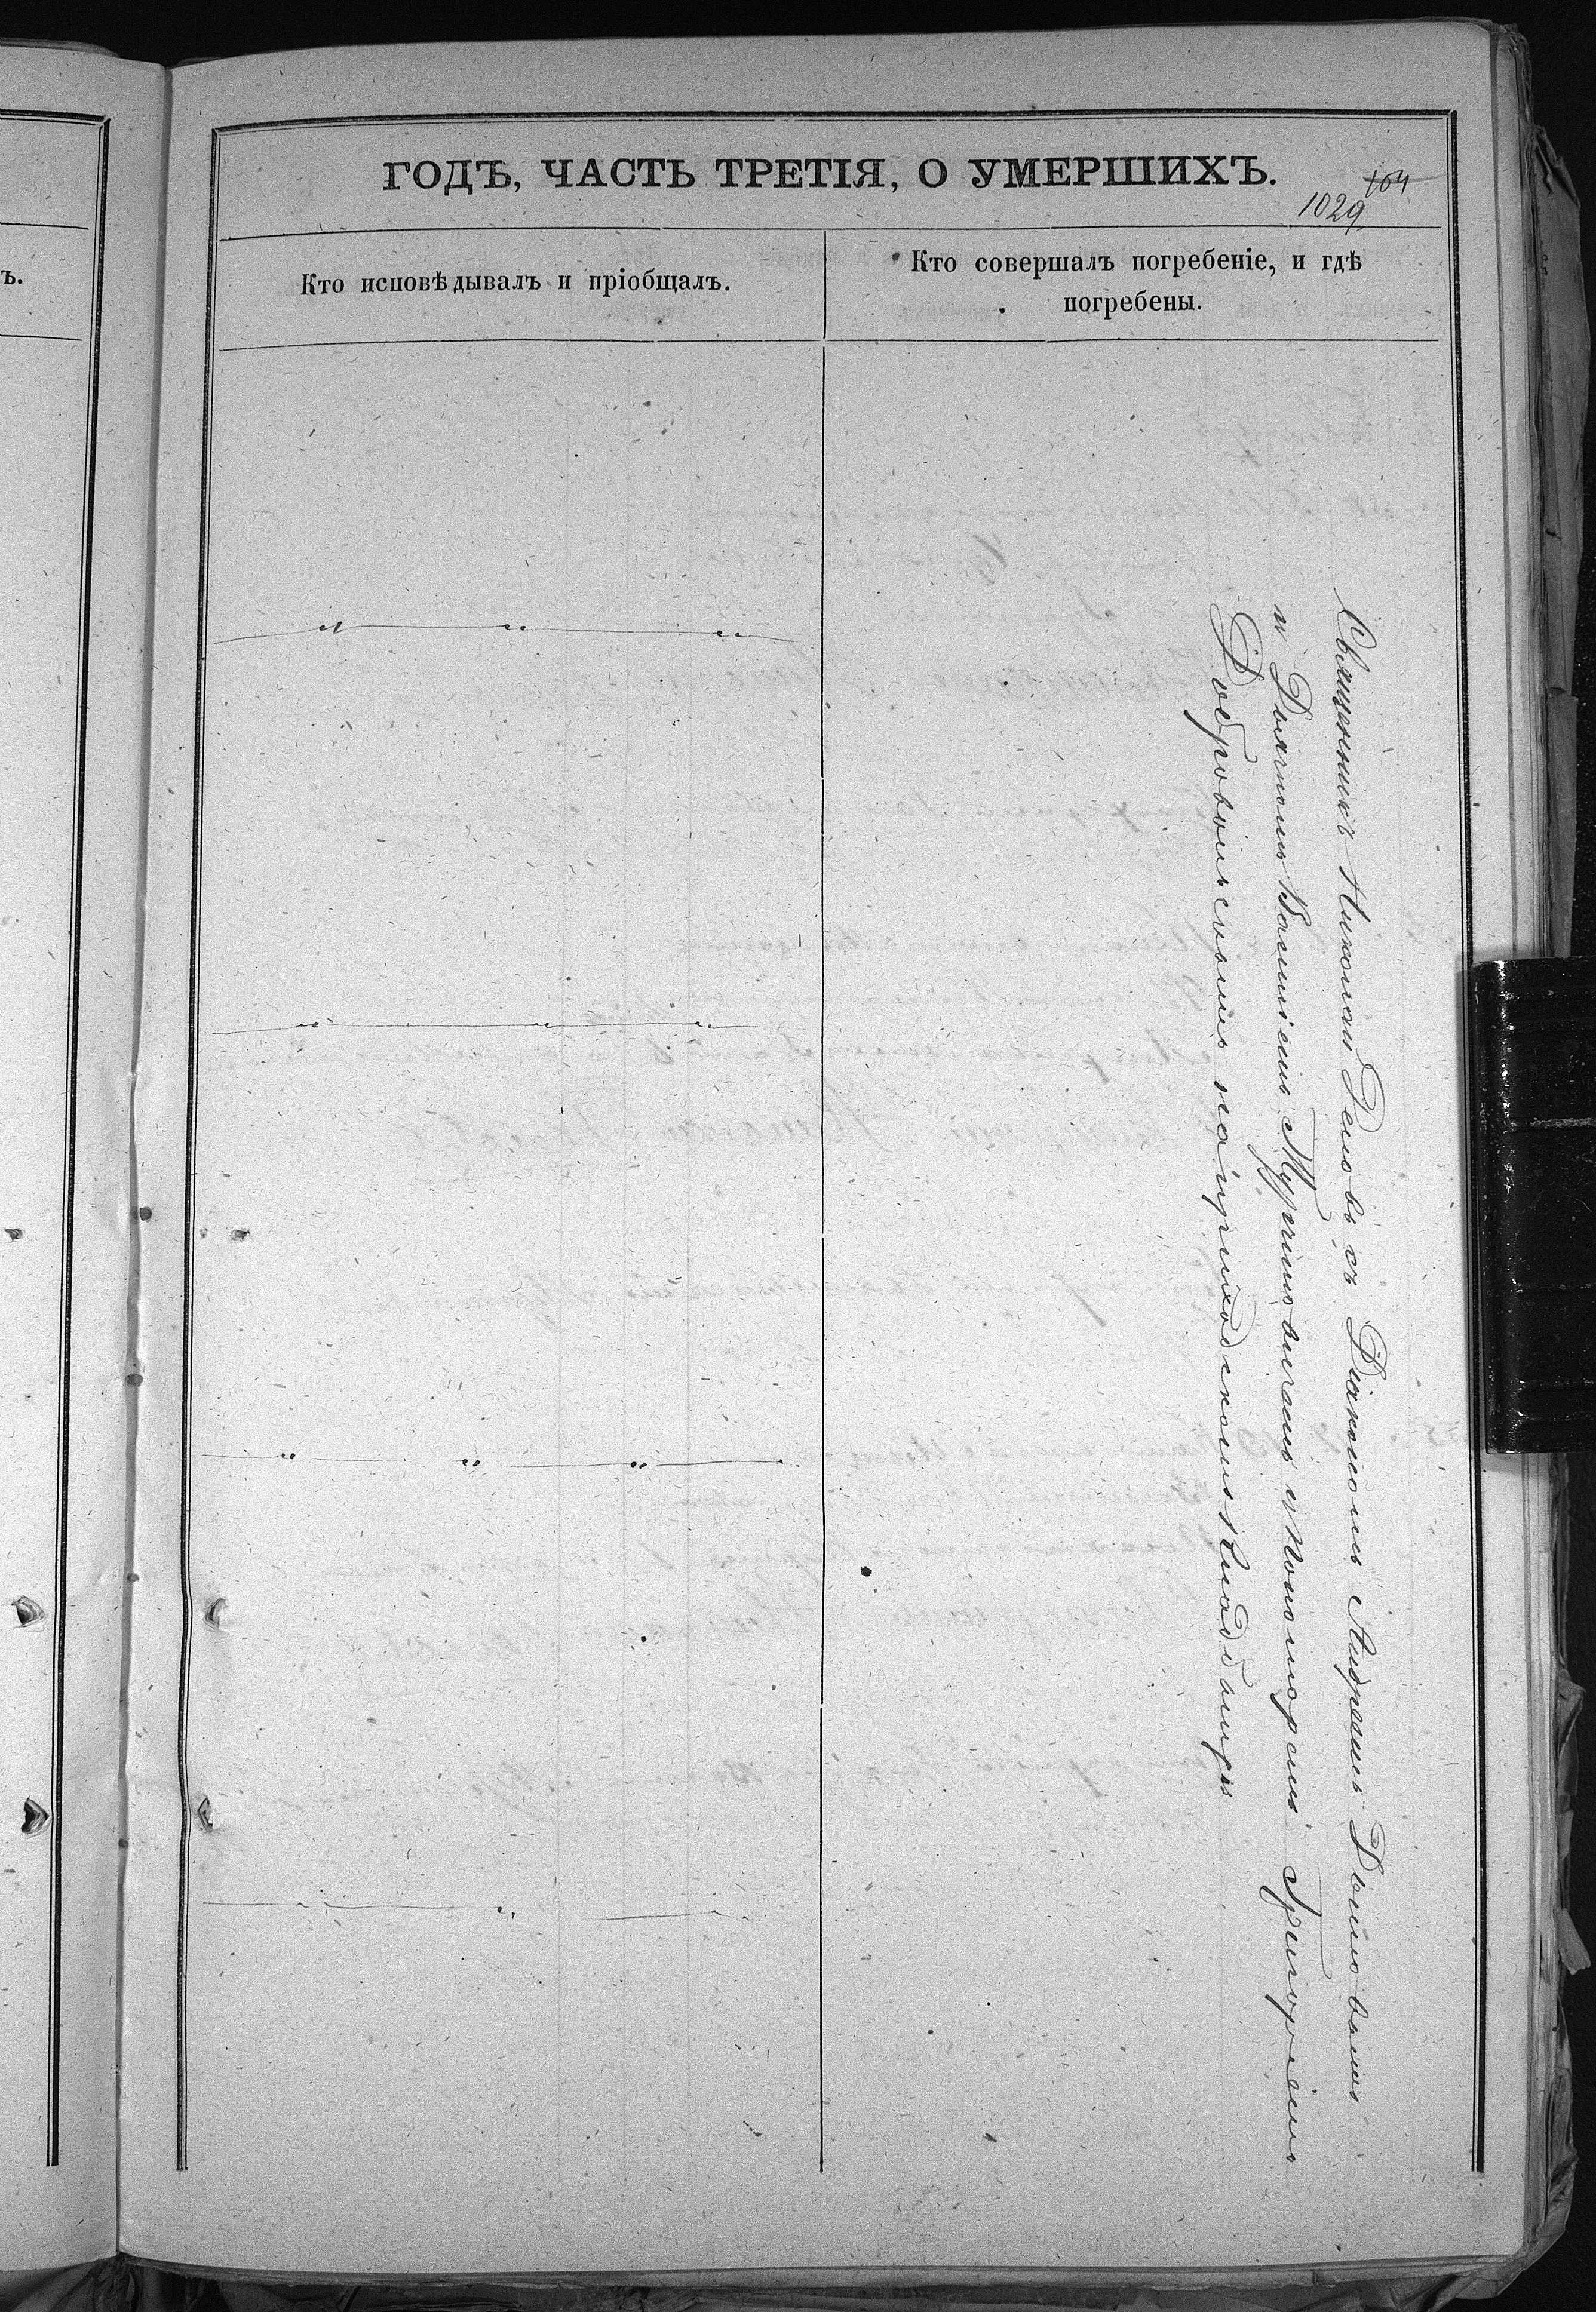 ГОДЪ, ЧАСТЬ ТРЕТІЯ, О УМЕРШИХЪ.
104
1029
ъ.
Кто исповѣдывалъ и пріобщалъ.
Кто совершалъ погребеніе, и гдѣ
погребены.
Священникъ Николай съ Діакономъ Андреемъ
и Дьячкомъ и Пономаремъ Григоріемъ
Добровольскимъ на приходскомъ кладбищѣ